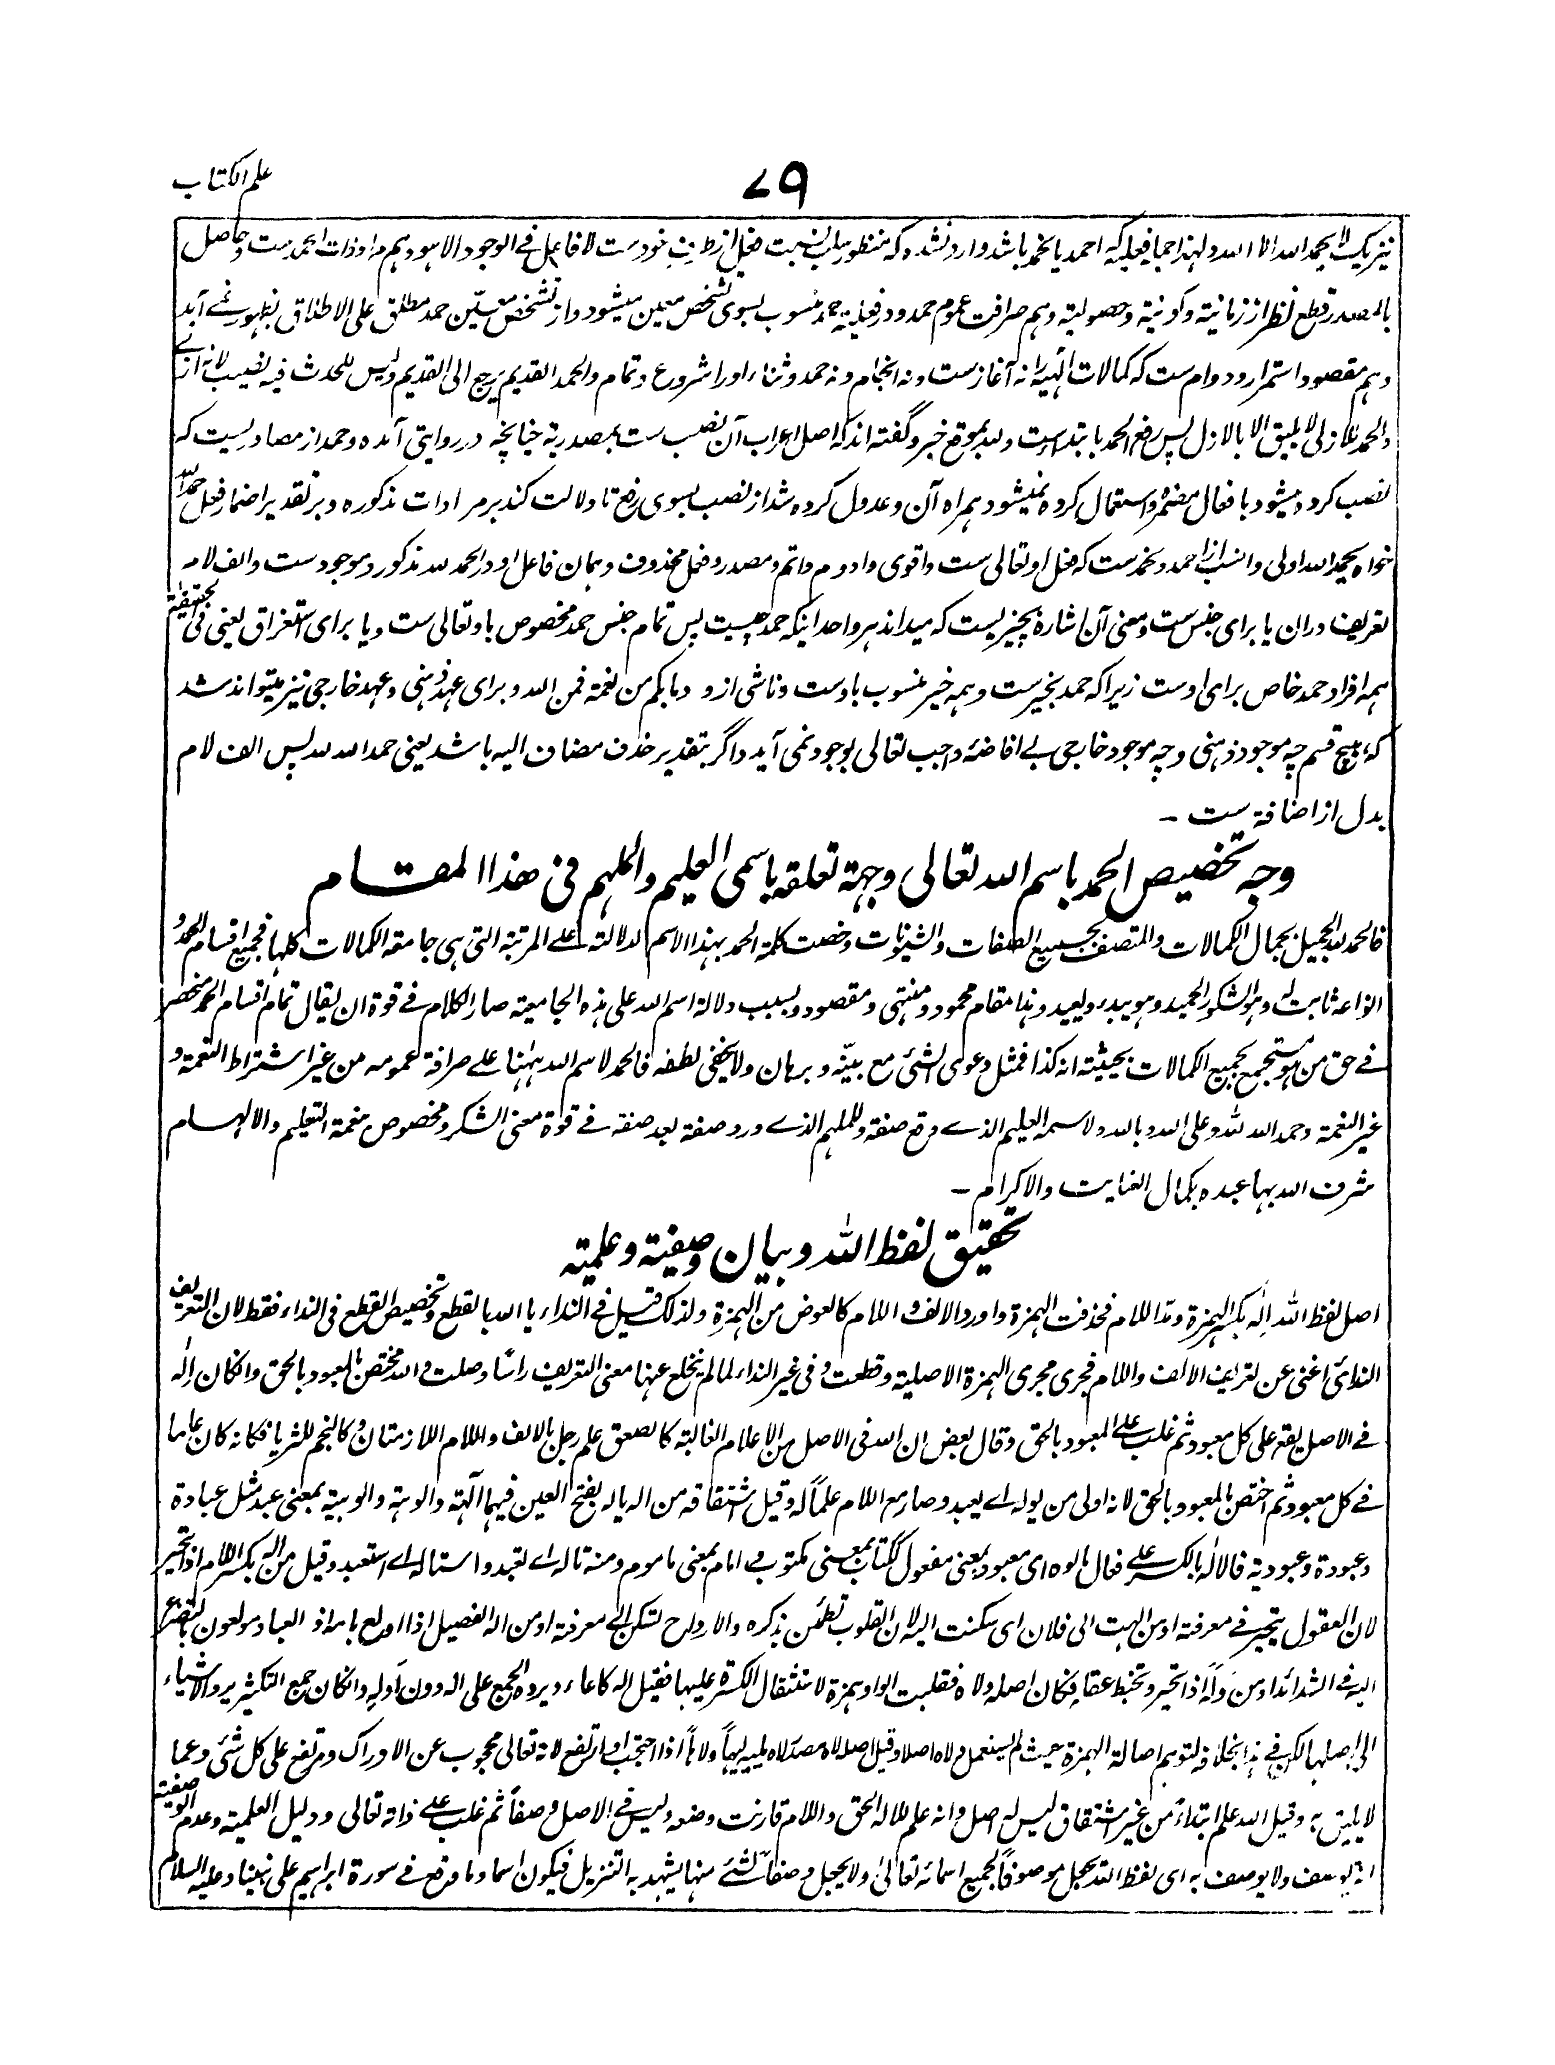 علم الکتاب
۷۹
نیز یک لا یحمد الله الا الله و لهذا جملۂ فعلیه که احمد یا نحمد باشد وارد نشده که منظور سلب نسبت فعل از طرف خودست لا فاعل فی الوجود الا هو و هم مراد ذات الحمدست و حاصل
بالمصدر قطع نظر از زمانیته و کونیته و حصولیته و هم صرافت عموم حمد و در فعلیه حمد منسوب بسوی تشخص معین میشود و از تشخص معین حمد مطلق علی الاطلاق بظهور نمی آید
و هم مقصود استمرار و دوام ست که کمالات الٰهیه را نه آغازست و نه انجام و نه حمد و ثناء او را شروع و تمام و الحمد القدیم یرجع الی القدیم و لیس للمحدث فیه نصیب لانه ازلی
و الحمد الازلی لا یلیق الا بالازل پس رفع الحمد بابتداست و لله بموقع خبر و گفته اند که اصل اعراب آن نصب ست بمصدریة چنانچه در روایتی آمده و حمد از مصادریست که
نصب کرده میشود با فعال مضمره و استعمال کرده نمیشود همراه آن و عدول کرده شد از نصب بسوی رفع تا دلالت کند بر مرادات مذکوره و بر تقدیر اضمار فعل حمد الله
خواه یحمد الله اولی و انسب از احمد و نحمدست که فعل او تعالی ست و اقوی و ادوم و اتم و مصدر و فعل محذوف و همان فاعل او در الحمد لله مذکور و موجودست و الف لام
تعریف دران یا برای جنس ست و معنی آن اشاره بچیزیست که میداند هر واحد اینکه حمد چیست پس تمام جنس حمد مخصوص باو تعالی ست و یا برای استغراق یعنی فی الحقیقة
همه افراد حمد خاص برای اوست زیراکه حمد بخیرست و همه خیر منسوب باوست و ناشی ازو و ما بکم من نعمة فمن الله و برای عهد ذهنی و عهد خارجی نیز میتواند شد
که هیچ قسم چه موجود ذهنی و چه موجود خارجی بے افاضۂ واجب تعالی بوجود نمی آید و اگر بتقدیر حذف مضاف الیه باشد یعنی حمد الله لله پس الف لام
بدل از اضافة ست ـ
وجه تخصیص الحمد باسم الله تعالی وجهة تعلقه باسمی العلیم و الملهم فی هذا المقام
فالحمد لله الجمیل بجمال الکمالات و المتصف بجمیع الصفات و الشیونات و خصت کلمة الحمد بهذا الاسم لدلالته علے المرتبة التی هی جامعة الکمالات کلها فجمیع اقسام الحمد و
انواعه ثابت له و هو الشکور الحمید و هو یبدء و یعید و هذا مقام محمود و منتهی و مقصود و بسبب دلالة اسم الله علی هذه الجامعیة صار الکلام فی قوة ان یقال تمام اقسام الحمد منحصر
فے حق من هو مستجمع بجمیع الکمالات بحیثیة انه کذا فمثل دعوی الشئ مع بینة و برهان و لا یخفی لطفه فالحمد لاسم الله ههنا علے صرافة عمومه من غیر اشتراط النعمة و
غیر النعمة و حمد الله لله و علی الله و بالله و لاسمه العلیم الذے وقع صفة و للملهم الذے ورد صفة بعد صفة فے قوة معنی الشکر و مخصوص بنعمة التعلیم و الالهام
شرف الله بها عبده بکمال العنایت و الاکرام ـ
تحقیق لفظ الله و بیان وصفیته و علمیته
اصل لفظ الله اله بکسر الهمزة و مد اللام فحذفت الهمزة و اورد الالف و اللام کالعوض من الهمزة و لذلک قیل فے النداء یا الله بالقطع و تخصیص القطع فی النداء فقط لان التعریف
الندائی اغنی عن تعریف الالف و اللام فجری مجری الهمزة الاصلیة و قطعت و فی غیر النداء لما لم یخلع عنها معنی التعریف راسا وصلت و الله مختص بالمعبود بالحق و ان کان اله
فے الاصل یقع علی کل معبود ثم غلب علے المعبود بالحق و قال بعض ان الله فی الاصل من الاعلام الغالبة کالصعق علم رجل بالالف و اللام اللازمتان و کالنجم للثریا فکانه کان عاما
فے کل معبود ثم اختص بالمعبود بالحق لانه اولی من یوله اے یعبد و صار مع اللام علما له و قیل اشتقاقه من اله یاله بفتح العین فیهما آلهة و الوهة و الوهیة بمعنی عبد مثل عبادة
و عبودة و عبودیة فالاله بالکسر علے فعال مالوه ای معبود بمعنی مفعول ککتاب بمعنی مکتوب و امام بمعنی ماموم و منه تاله اے تعبد و استاله اے استعبد و قیل من اله بکسر اللام اذا تحیر
لان العقول یتحیر فے معرفته او من الهت الی فلان ای سکنت الیه لان القلوب تطمئن بذکره و الارواح تسکن الی معرفته او من اله الفصیل اذا اولع بامه اذ العباد مولعون بالتضرع
الیه فی الشدائد او من وله اذا تحیر و تخبط عقله فکان اصله ولاه فقلبت الواو همزة لاستثقال الکسرة علیها فقیل اله کاعاء و یرده الجمع علی الهة دون اولهة و ان کان جمع التکثیر یرد الاشیاء
الی اصلها لکن فے هذا بخلافه لتوهم اصالة الهمزة حیث لم یستعمل ولاه اصلا و قیل اصله لاه مصدر لاه یلیه لیها و لاها اذا احتجب او ارتفع لانه تعالی محجوب عن الادراک و مرتفع علی کل شئ و عما
لا یلیق به و قیل الله علم ابتداء من غیر اشتقاق لیس له اصل و انه علم للاله الحق و اللام قارنت وضعه و لیس فے الاصل وصفا ثم غلب علے ذاته تعالی و دلیل العلمیة و عدم الوصفیة
انه یوصف و لا یوصف به ای لفظ الله یجعل موصوفا لجمیع اسمائه تعالی و لا یجعل وصفا لشئ منها یشهد به التنزیل فیکون اسما و ما وقع فے سورة ابراهیم علی نبینا و علیه السلام